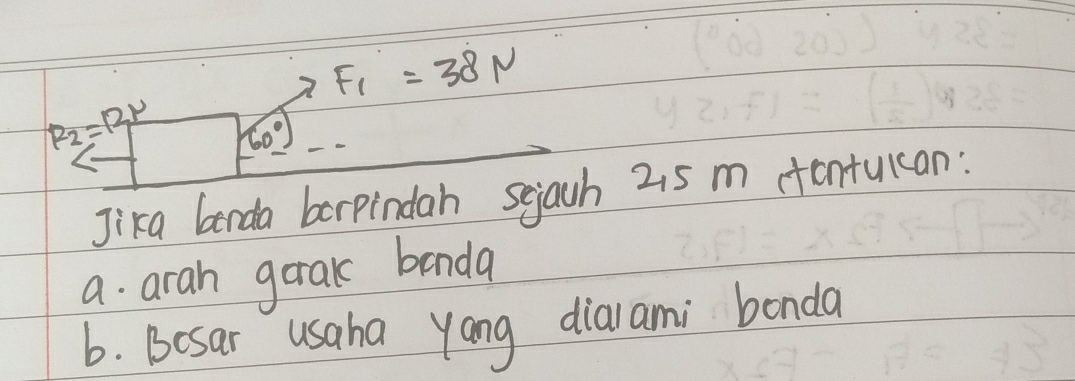 F₁ = 38 N
F₂ = 12 N
60°
Jika benda berpindah sejauh 2,5 m tentukan:
a. arah gerak benda
b. Besar usaha yang dialami benda